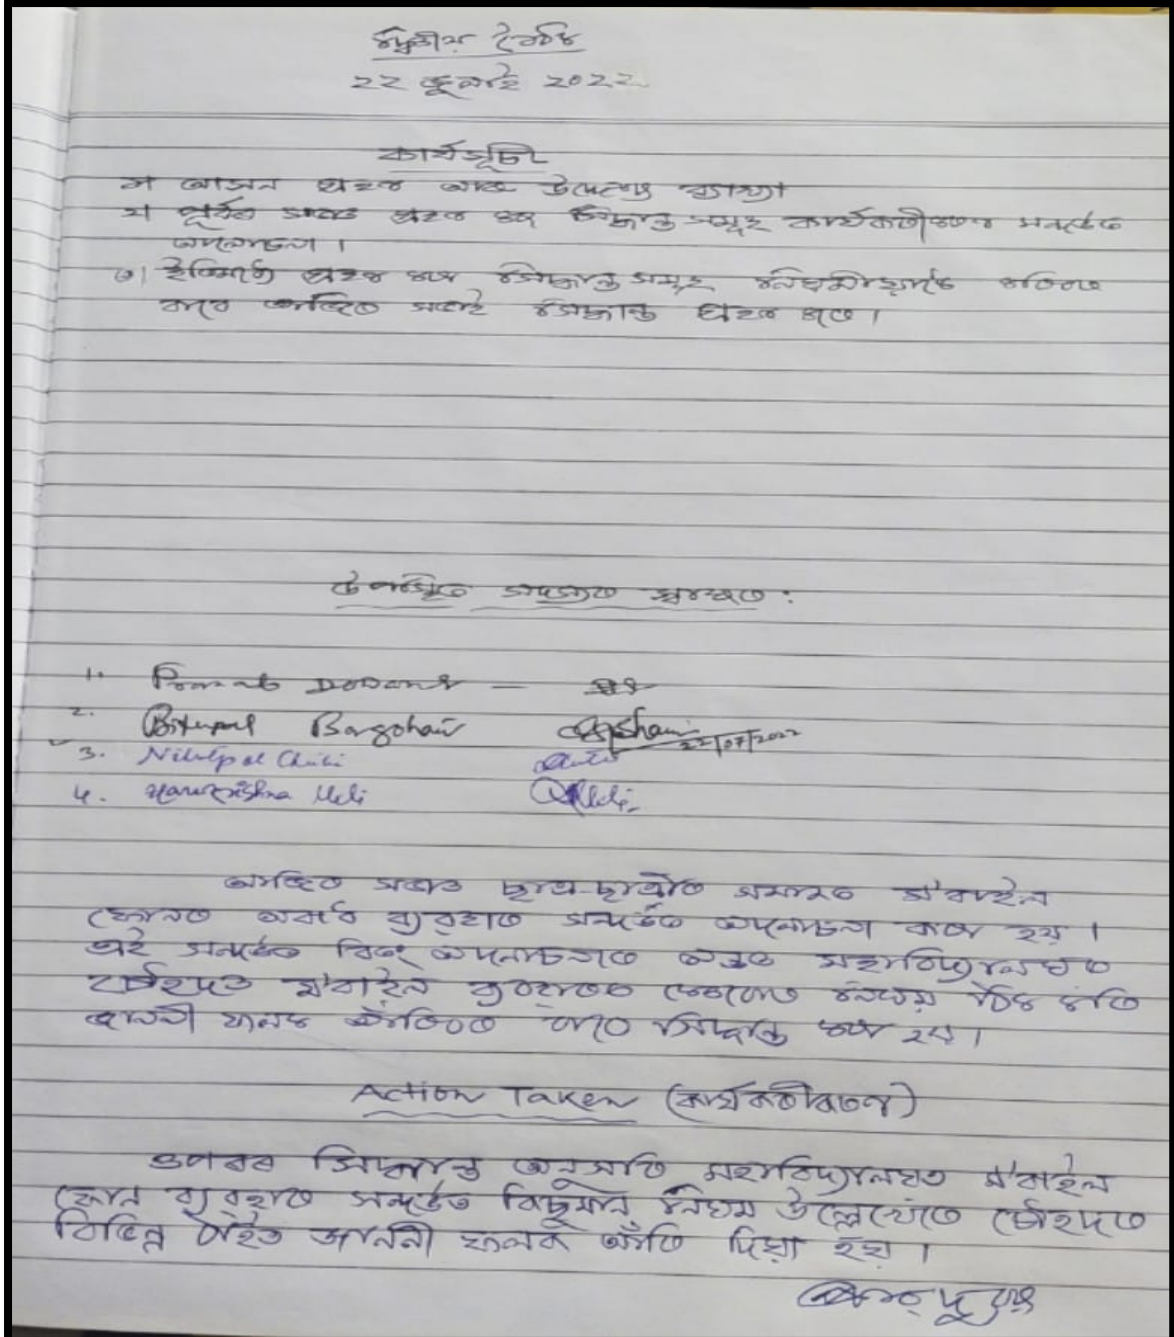 দ্বিতীয় বৈঠক
২২ জুলাই ২০২২
কাৰ্যসূচী
১৷ আসন গ্ৰহণ আৰু উদ্দেশ্য ব্যাখ্যা
২৷ পূৰ্বৰ সভাত গ্ৰহণ সিদ্ধান্ত সমূহ কাৰ্যকৰীকৰণ সন্দৰ্ভত
আলোচনা।
৩৷ গ্ৰহণ কৰা সিদ্ধান্ত সমূহ
আজিৰ সভাই সিদ্ধান্ত গ্ৰহণ কৰে।
উপস্থিত সদস্যৰ স্বাক্ষৰ:
1.
2. Bitupal Borgohain 22/07/2022
3. Nilutpal Chutia
4. Harekrishna Mili
আজিৰ সভাত ছাত্ৰ-ছাত্ৰীৰ সমাজত ম'বাইল
ফোনৰ অবাধ ব্যৱহাৰ সন্দৰ্ভত আলোচনা কৰা হয়।
এই সন্দৰ্ভত আলোচনাৰে অন্তত মহাবিদ্যালয়ৰ
চৌহদত ম'বাইল ব্যৱহাৰৰ ক্ষেত্ৰত নিয়ম ঠিক কৰি
জাননী ফলক আঁৰিব সিদ্ধান্ত কৰা হয়।
Action Taken (কাৰ্যকৰীকৰণ)
ওপৰৰ সিদ্ধান্ত অনুসৰি মহাবিদ্যালয়ত ম'বাইল
ফোন ব্যৱহাৰ সন্দৰ্ভত কিছুমান নিয়ম উল্লেখেৰে চৌহদৰ
বিভিন্ন ঠাইত জাননী ফলক আঁৰি দিয়া হয়।